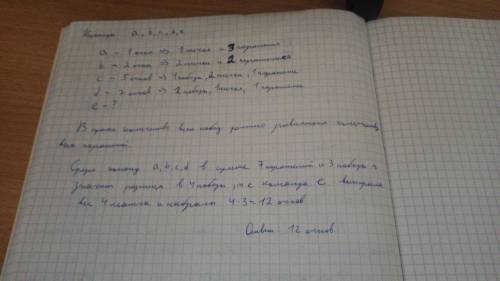 Команды a, b, c, d, e
a – 1 очко ⇒ 1 ничья и 3 поражения
b – 2 очка ⇒ 2 ничьи и 2 поражения
c – 5 очков ⇒ 1 победа, 2 ничьи, 1 поражение
d – 7 очков ⇒ 2 победы, 1 ничья, 1 поражение
e – ?
В количество всех побед должно количеству
всех поражений.
Среди команд a, b, c, d в сумме 7 поражений и 3 победы ⇒
значит разница в 4 победы, т.е. команда e выиграла
все 4 матча и набрала 4·3=12 очков
Ответ: 12 очков.